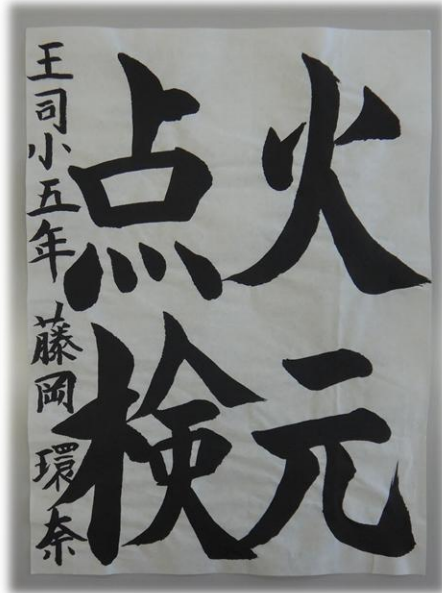 火元
点検
王司小五年 藤岡環奈